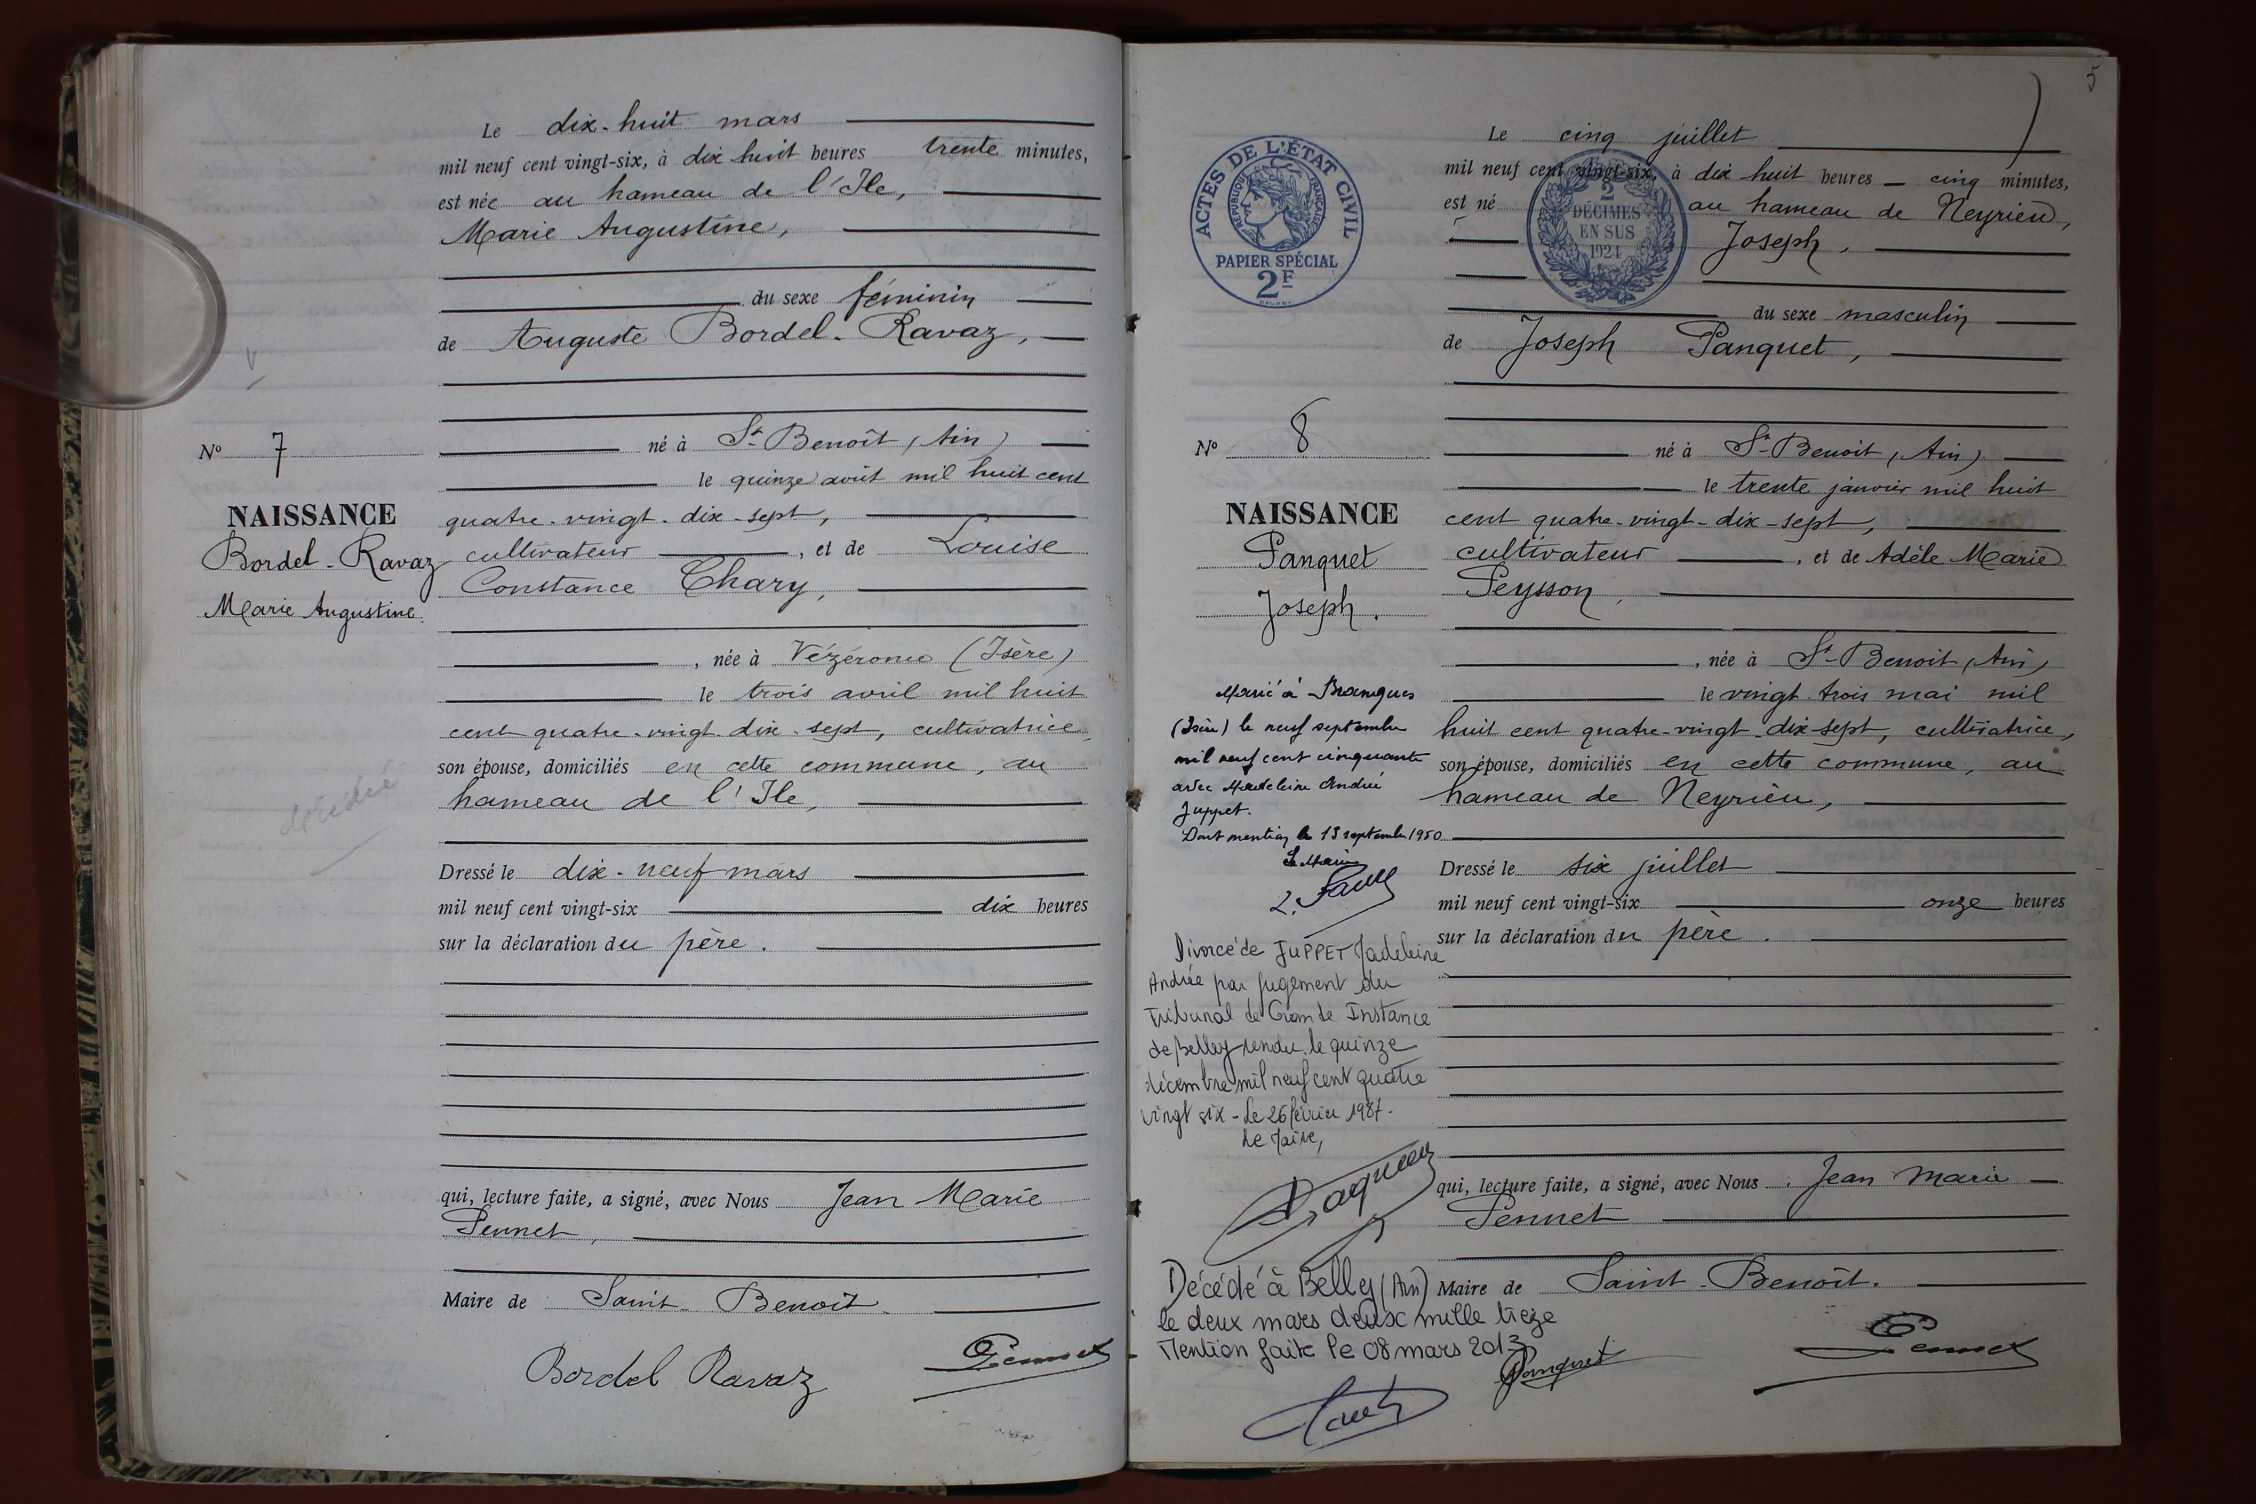 Le dix-huit mars
mil neuf cent vingt-six, à dix huit heures trente minutes,
est née au hameau de l'Ile,
Marie Augustine,
du sexe féminin
de Auguste Bordel-Ravaz,
né à St Benoît (Ain)
le quinze août mil huit cent
quatre-vingt-dix-sept,
cultivateur, et de Louise
Constance Chary,
, née à Vézeronce (Isère)
le trois avril mil huit
cent quatre-vingt-dix-sept, cultivatrice,
son épouse, domiciliés en cette commune, au
hameau de l'Ile,
Dressé le dix-neuf mars
mil neuf cent vingt-six dix heures
sur la déclaration du père.
qui, lecture faite, a signé, avec Nous Jean Marie
Pennet,
Maire de Saint-Benoît.
Bordel Ravaz Pennet
No 7
NAISSANCE
Bordel-Ravaz
Marie Augustine
décédée
5
ACTES DE L'ÉTAT CIVIL
RÉPUBLIQUE FRANÇAISE
PAPIER SPÉCIAL
2F
2
DÉCIMES
EN SUS
1924
Le cinq juillet
mil neuf cent vingt-six, à dix huit heures cinq minutes,
est né au hameau de Neyrieu,
Joseph,
du sexe masculin
de Joseph Panquet,
né à St Benoit, (Ain)
le trente janvier mil huit
cent quatre-vingt-dix-sept,
cultivateur, et de Adèle Marie
Peysson,
, née à St-Benoit, (Ain)
le vingt-trois mai mil
huit cent quatre-vingt-dix-sept, cultivatrice,
son épouse, domiciliés en cette commune, au
hameau de Neyrieu,
Dressé le six juillet
mil neuf cent vingt-six onze heures
sur la déclaration du père.
qui, lecture faite, a signé, avec Nous Jean Marie
Pennet
Maire de Saint-Benoît.
Panquet Pennet
No 8
NAISSANCE
Panquet
Joseph.
Marié à Brangues
(Isère) le neuf septembre
mil neuf cent cinquante
avec Madeleine Andrée
Juppet.
Dont mention le 13 septembre 1950
Le Maire
Divorcé de JUPPET Madeleine
Andrée par jugement du
Tribunal de Grande Instance
de Belley rendu le quinze
décembre mil neuf cent quatre
vingt six - Le 26 février 1987.
Le Maire,
Décédé à Belley (Ain)
le deux mars deux mille treize
Mention faite le 08 mars 2013